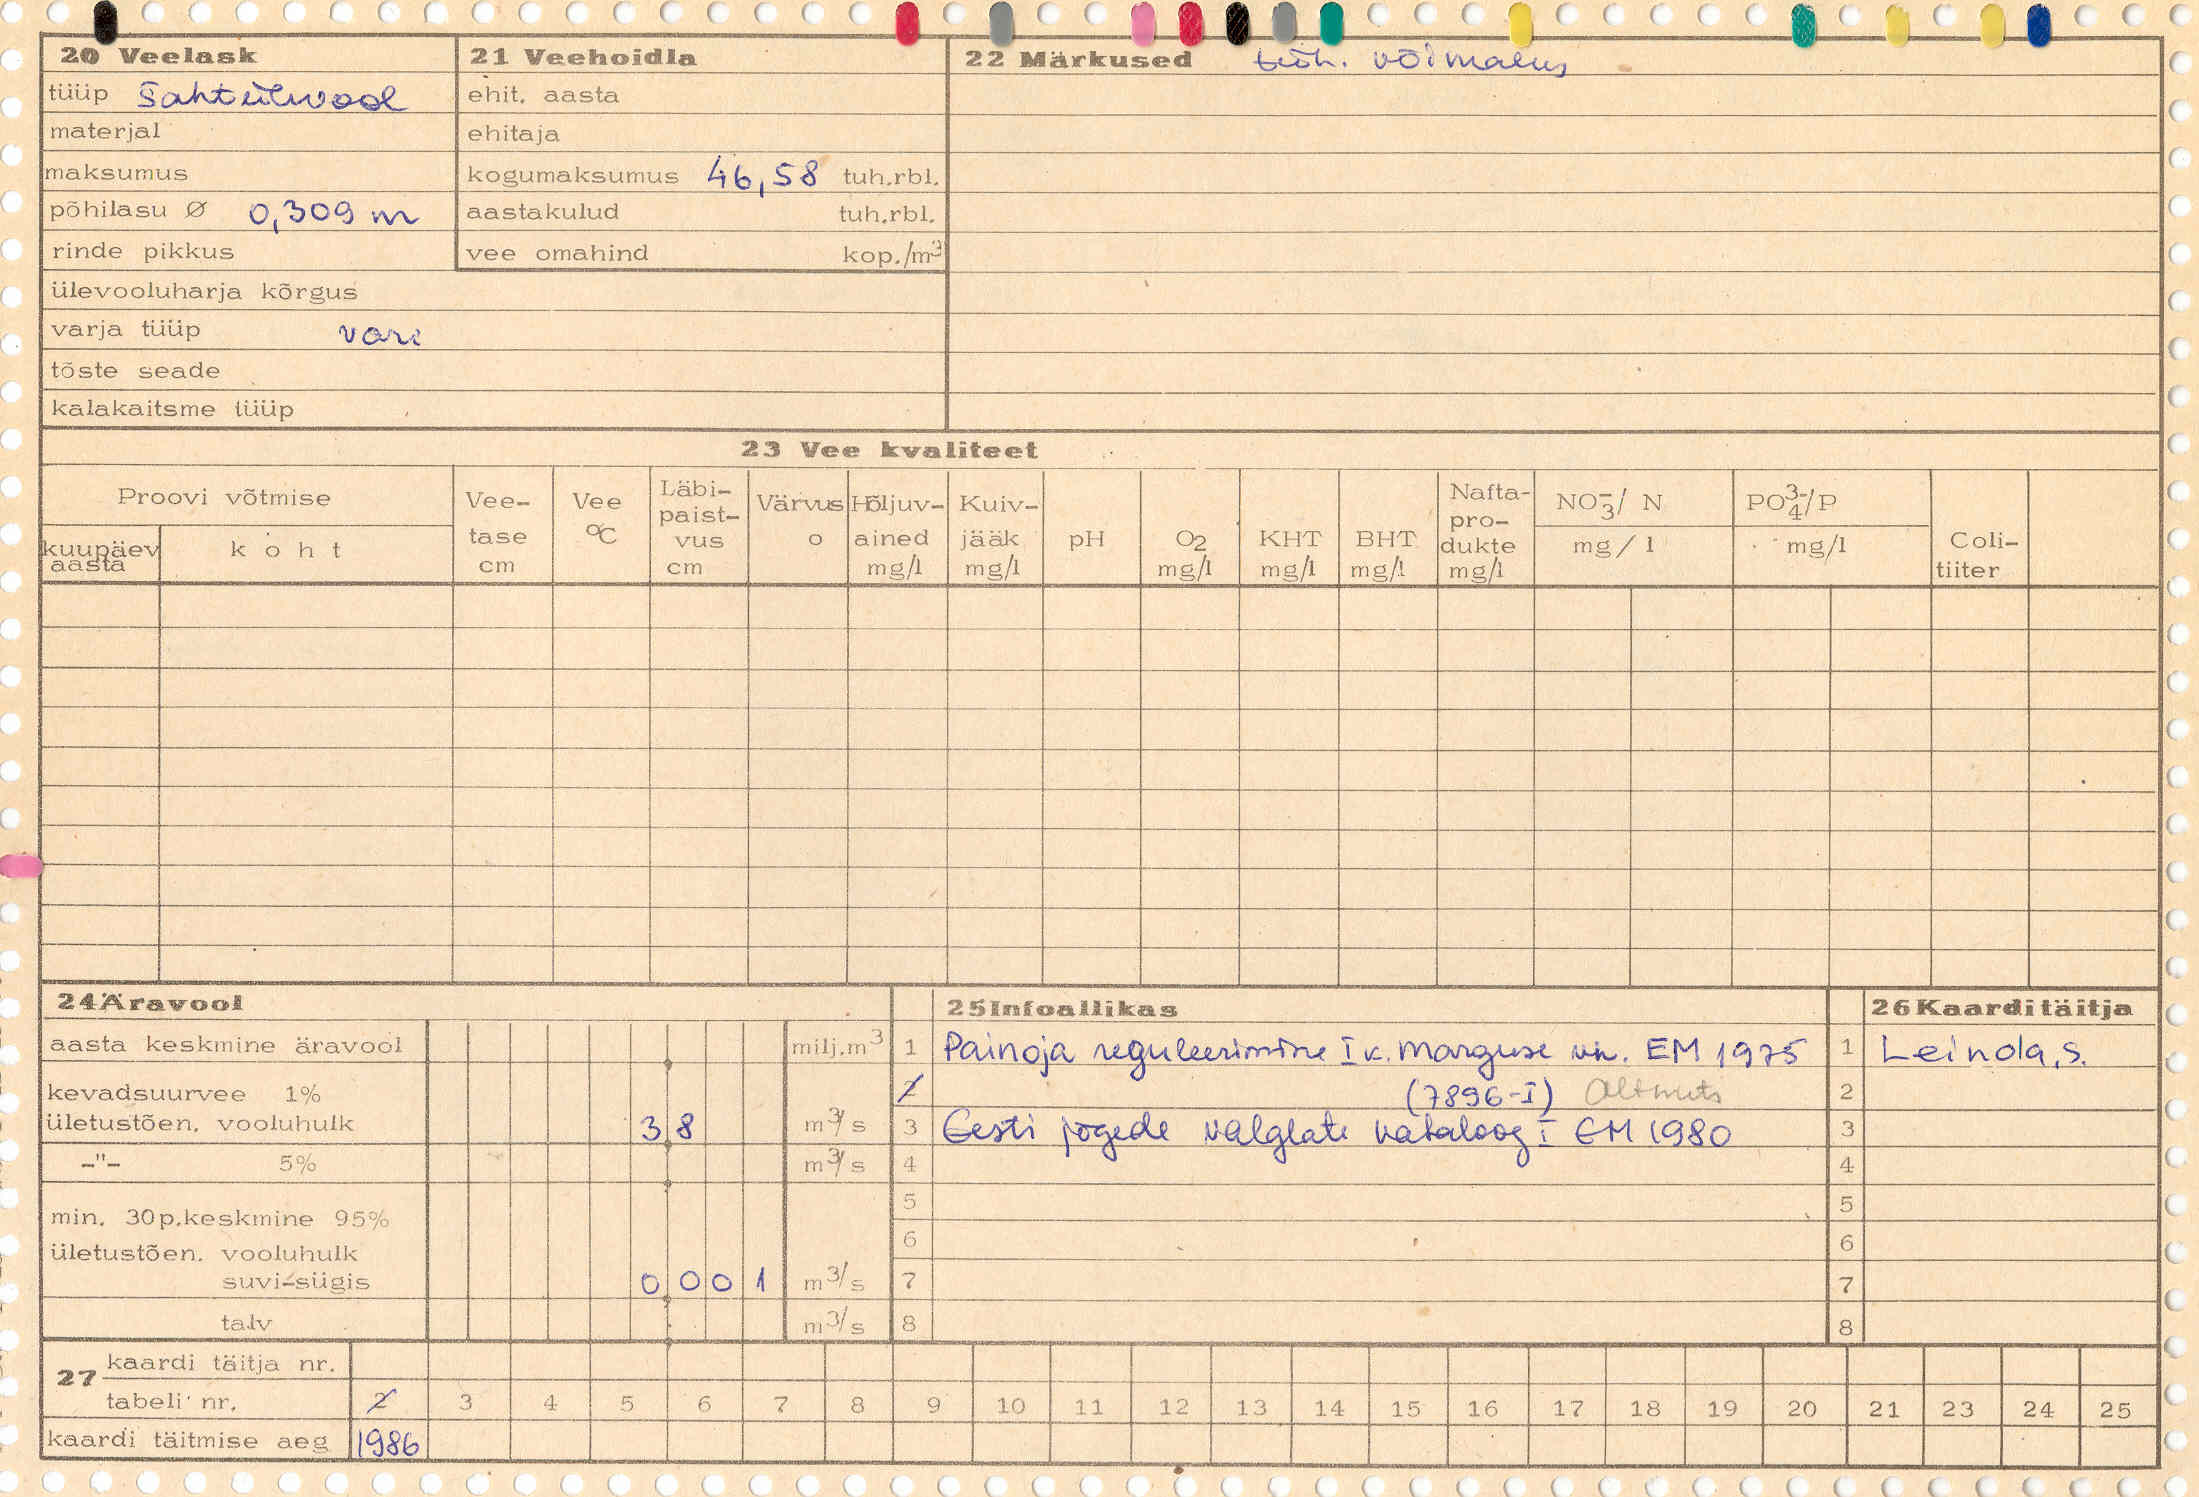 20 Veelask
tüüp Šahtülevool
materjal
maksumus
põhilasu Ø 0,309 m
rinde pikkus
ülevooluharja kõrgus
varja tüüp vari
tõste seade
kalakaitsme tüüp
21 Veehoidla
ehit. aasta
ehitaja
kogumaksumus 46,58 tuh.rbl.
aastakulud tuh.rbl.
vee omahind kop./m³
22 Märkused võimalus
23 Vee kvaliteet
Proovi võtmise
kuupäev aasta
koht
Vee-
tase
cm
Vee
°C
Läbi-
paist-
vus
cm
Värvus
o
Hõljuv-
ained
mg/l
Kuiv-
jääk
mg/l
pH
O2
mg/l
KHT
mg/l
BHT
mg/l
Nafta-
pro-
dukte
mg/l
NO3⁻/ N
mg/l
PO4³⁻/P
mg/l
Coli-
tiiter
24 Äravool
aasta keskmine äravool milj.m³
kevadsuurvee 1%
ületustõen. vooluhulk 3,8 m³/s
-"- 5% m³/s
min. 30p.keskmine 95%
ületustõen. vooluhulk
suvi-sügis 0,001 m³/s
talv m³/s
25 Infoallikas
1 Painoja reguleerimine I k. Marguse vh. EM 1975
2 (7896-I)
3 Eesti jõgede valglate kataloog I EM 1980
4
5
6
7
8
26 Kaarditäitja
1 Leinola, S.
2
3
4
5
6
7
8
27 kaardi täitja nr.
tabeli nr. 2 3 4 5 6 7 8 9 10 11 12 13 14 15 16 17 18 19 20 21 23 24 25
kaardi täitmise aeg 1986